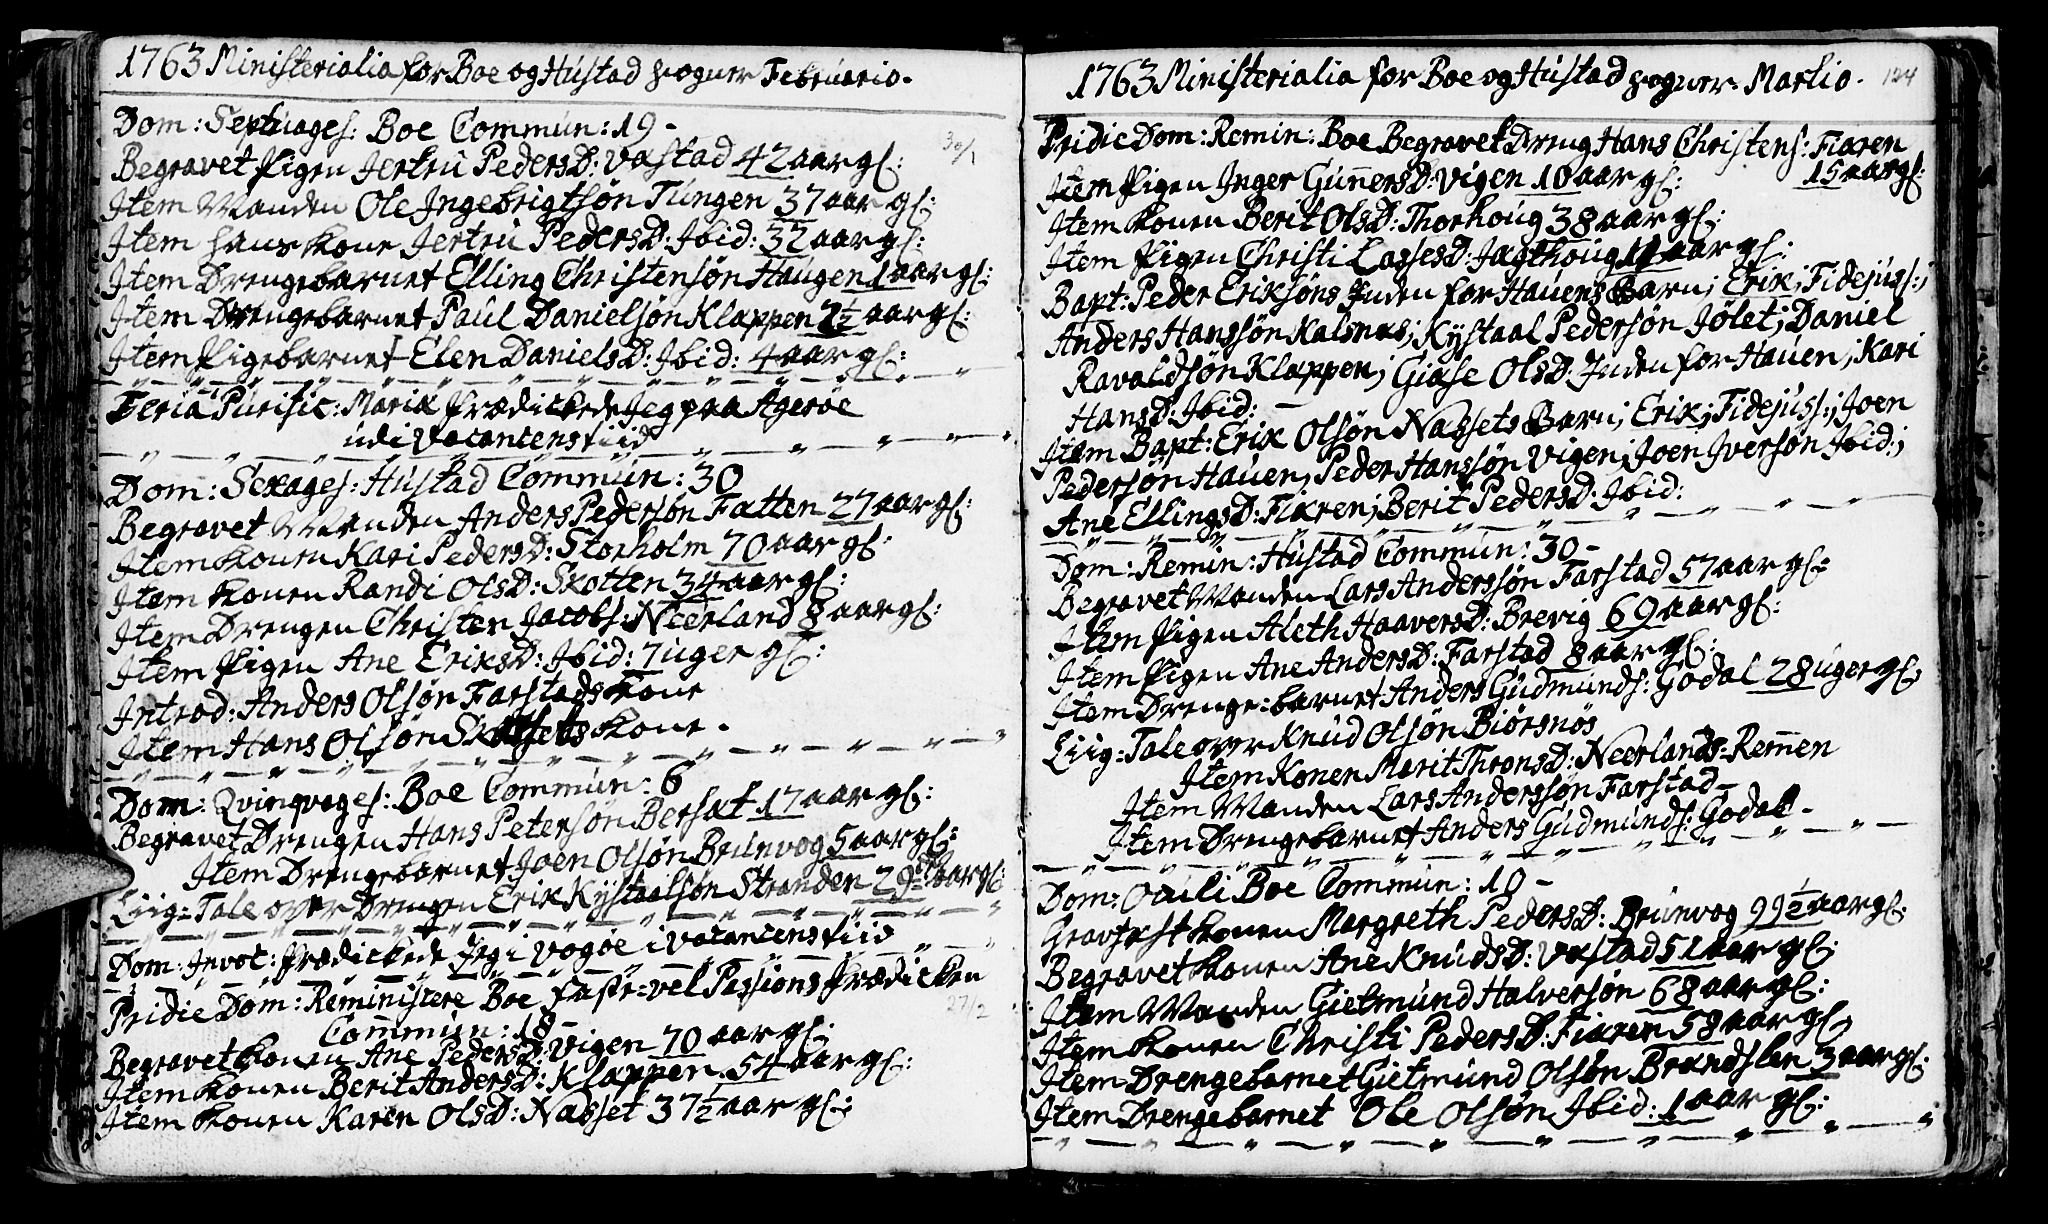 1763 Ministerialia for Boe og Hústad Sogner Febrúario.
Dom: Septúages: Boe Commún: 19 -
30/1
Begravet Pigen Jertrú PedersD: Vastad 42 aar gl:
Item Manden Ole Ingebrigtsøn Túngen 37 aar gl:
Item hans kone Jertrú PedersD: Ibid: 32 aar gl:
Item Drengebarnet Elling Christensøn Haúgen 1 aar gl:
Item Drengebarnet Paúl Danielsøn Klappen 2½ aar gl:
Item Pigebarnet Elen DanielsD: Ibid: 4 aar gl:
Feria Púrific: Mariæ prædickede Jeg paa Agerøe
udi Vacantens tiid
Dom: Sexages: Hústad Commún: 30
Begravet Manden Anders Pedersøn Fatten 27 aar gl:
Item konen Kari PedersD: Storholm 70 aar gl:
Item konen Randi OlsD: Skotten 34 aar gl:
Item Drengen Christen Jacobs: Neerland 8 aar gl:
Item Pigen Ane EriksD: Ibid: 7 úger gl:
Introd: Anders Olsøn Farstads kone
Item Hans Olsøn Skalsets kone -
Dom: Qvinqvages: Boe Commún: 6
Begravet Drengen Hans Petersøn Bersat 17 aar gl:
Item Drengebarnet Joen Olsøn Brúnvog 5 aar gl:
Liig-Tale over Drengen Erik Kystaalsøn Stranden 29 aar gl:
Dom: Invoc: Prædickede Jeg i Vogøe i Vacantens tiid
Pridie Dom: Reministere Boe faste-vel Passions Prædicken
Commún: 18 -
27/2
Begravet konen Ane PedersD: Vigen 70 aar gl:
Item konen Berit AndersD: Klappen 54 aar gl:
Item konen Karen OlsD: Nasset 37½ aar gl:
1763 Ministerialia for Boe og Hústad Sogner. Martio.
124
Pridie Dom: Remin: Boe Begravet Dreng Hans Christens: Fiaren
15 aar gl:
Item Pigen Inger GúnersD: Vigen 10 aar gl:
Item konen Berit OlsD: Thorhoúg 38 aar gl:
Item Pigen Christi LassesD: Jagthoúg 11 aar gl:
Bapt: Peder Eriksøns Inden for Haúens Barn; Erik; Fidejúss:;
Anders Hanssøn Kalsnes; Kystaal Pedersøn Jølet; Daniel
Ravaldsøn Klappen; Giøse OlsD: Inden for Haúen; Kari
HansD: Ibid: -
Item Bapt: Erik Olsøn Nassets Barn; Erik; Fidejúss:; Joen
Pedersøn Haúen; Peder Hanssøn Vigen; Joen Iversøn Ibid:;
Ane EllingsD: Fiaren; Berit PedersD: Ibid:
Dom: Remin: Hústad Commún: 30 -
Begravet Manden Lars Anderssøn Farstad 57 aar gl:
Item Pigen Aleth HaaversD: Brevig 69 aar gl:
Item Pigen Ane AndersD: Farstad 8 aar gl:
Item Drenge-barnet Anders Gúdmúnds: Godal 28 úger gl:
Liig-Tale over Knúd Olsøn Biørsnøs
Item Konen Marit ThronsD: Neerlands-Remen
Item Manden Lars Anderssøn Farstad -
Item Drengebarnet Anders Gúdmúnds: Godal -
Dom: Oculi Boe Commún: 19 -
Gravfæst konen Margreth PedersD: Brúnvog 99½ aar gl:
Begravet konen Ane KnúdsD: Vastad 51 aar gl:
Item Manden Gietmúnd Halversøn 68 aar gl:
Item konen Christi PedersD: Fiaren 58 aar gl:
Item Drengebarnet Gietmúnd Olsøn Brandslen 3 aar gl:
Item Drengebarnet Ole Olsøn Ibid: 1 aar gl: